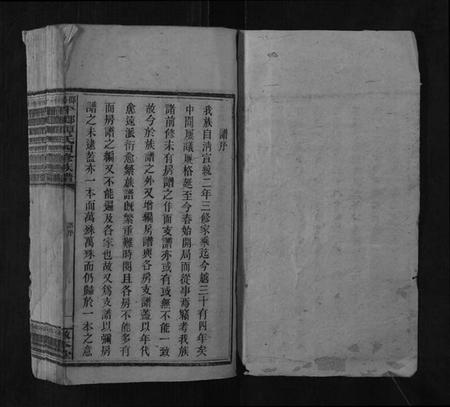 譜序
我族自清宣統二年三修家乘迄今越三十有四年矣
中間屢議屢格延至今春始開局而從事焉竊考我族
諸前修未有房譜之作而支譜亦或有或無不能一致
故今於族譜之外又增編房譜與各房支譜蓋以年代
愈遠派衍愈繁族譜既繁重難時閱且各房不能多有
而房譜之編又不能遍及各家也故又為支譜以彌房
譜之未遠蓋亦一本而萬殊萬殊而仍歸於一本之意
四修族譜
譜序